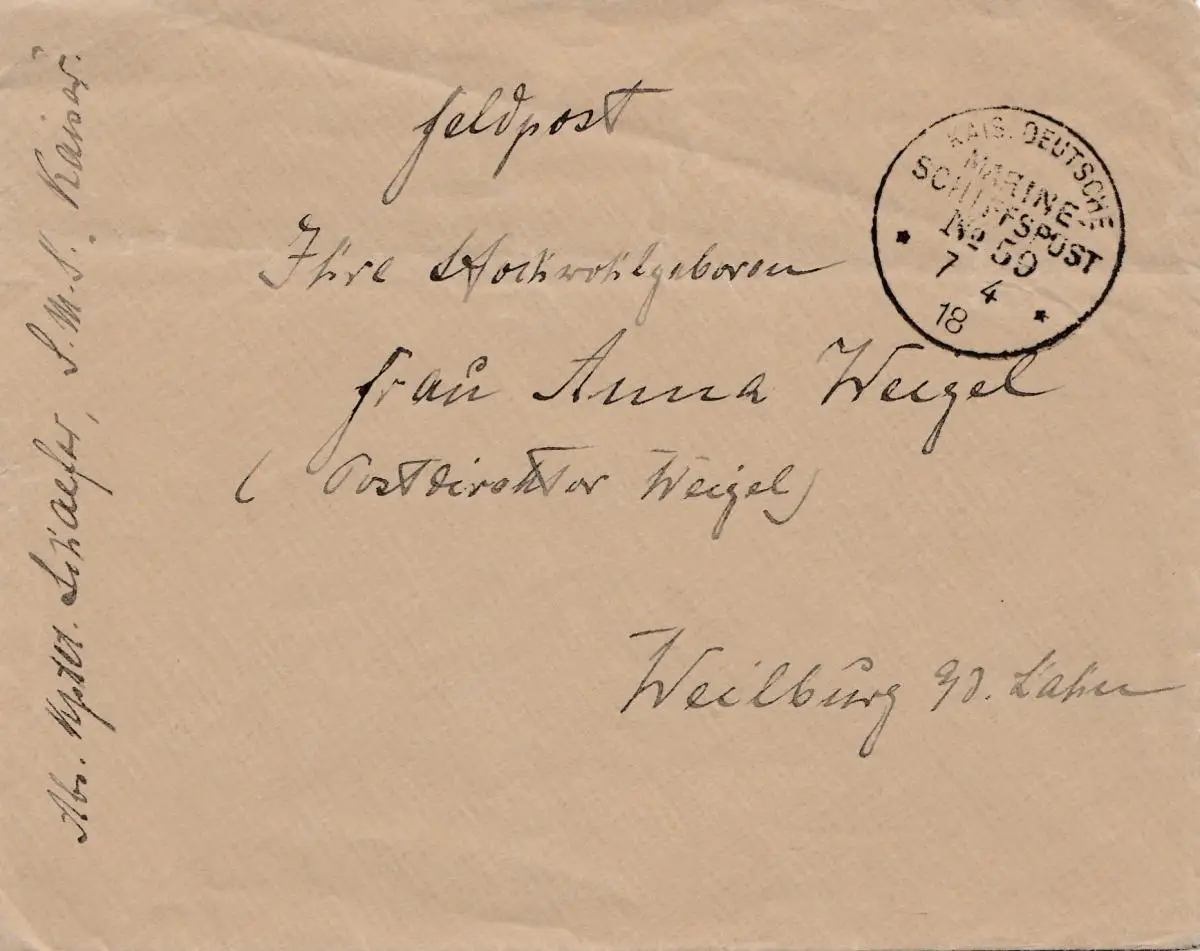 Feldpost
KAIS. DEUTSCHE
MARINE-
SCHIFFSPOST
No 59
7 4
18
Ihre Hochwohlgeboren
Frau Anna Weigel
(Postdirektor Weigel)
Weilburg a/d. Lahn
Abs. Schaefer, S.M.S. "Kaiser"